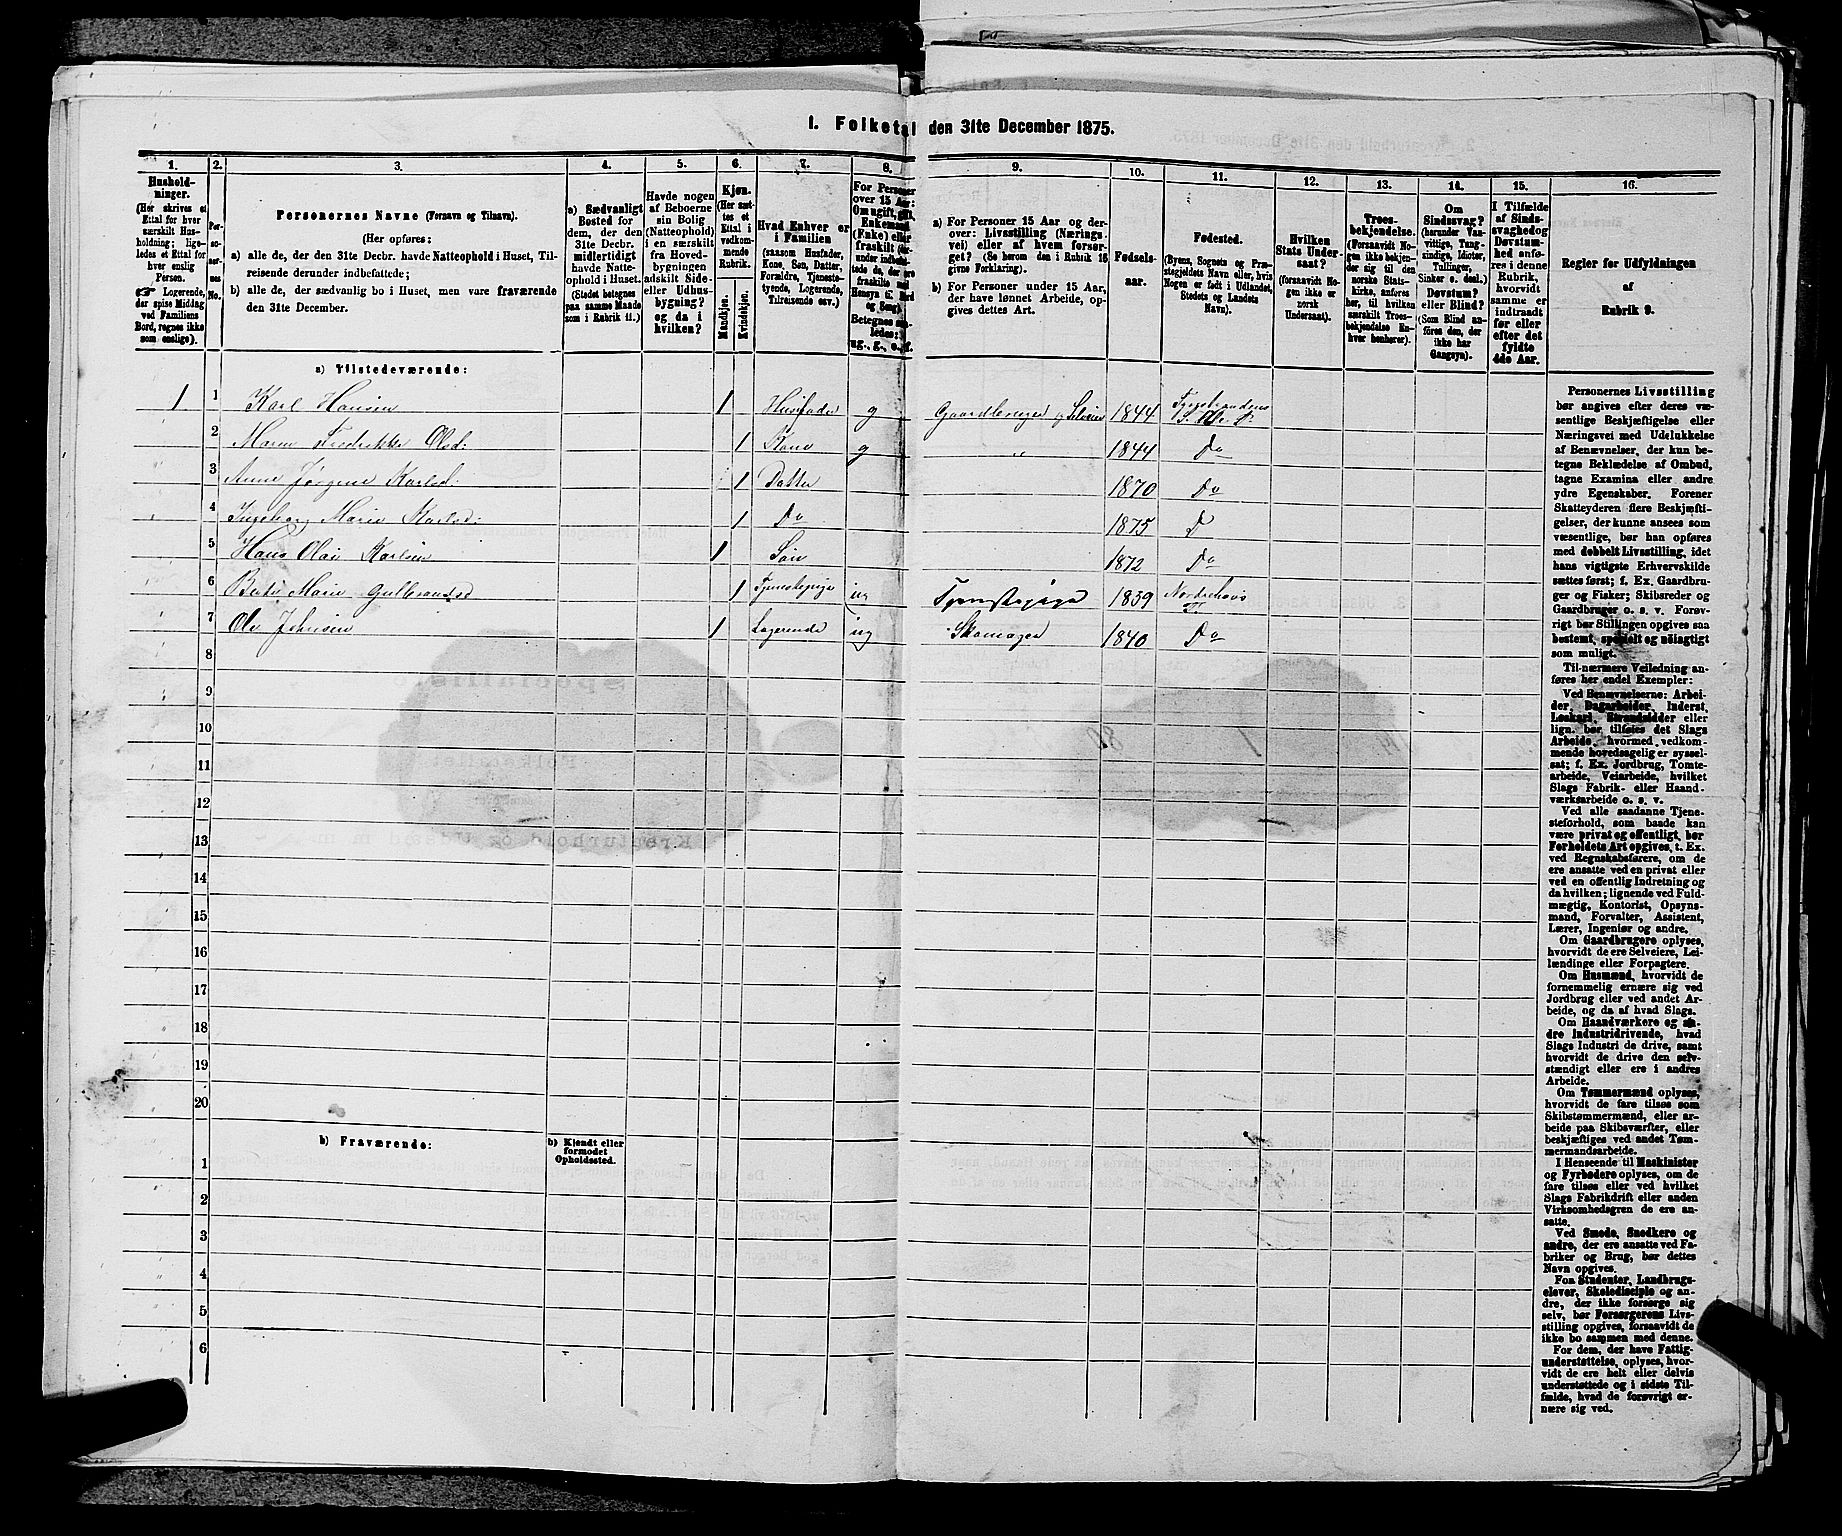 1. Folketal den 31te December 1875.
1.
Hushold-
ninger.
(Her skrives et
Ettal for hver
særskilt Hus-
holdning; lige-
ledes et Ettal for
hver enslig
Person.
Logerende,
der spise Middag
ved Familiens
Bord, regnes ikke
som enslige).
2.
Per-
so-
ner-
nes
No.
3.
Personernes Navne (Fornavn og Tilnavn).
(Her opføres;
a) alle de, der den 31te Decbr. havde Natteophold i Huset, Til-
reisende derunder indbefattede;
b) alle de, der sædvanlig bo i Huset, men vare fraværende
den 31te December.
4.
a) Sædvanligt
Bosted for
dem, der den
31te Decbr.
midlertidigt
havde Natte-
ophold i Huset.
(Stedet betegnes
paa samme Maade
som i Rubrik 11.)
5.
Havde nogen
af Beboerne
sin Bolig
(Natteophold)
i en særskilt
fra Hoved-
bygningen
adskilt Side-
eller Udhus-
bygning?
og da i
hvilken?
6.
Kjøn.
(Her sæt-
tes et
Ettal i
vedkom-
mende
Rubrik.
Mandkjøn.
Kvindekjøn.
7.
Hvad Enhver er
i Familien
(saasom Husfader,
Kone, Søn, Datter,
Forældre, Tjeneste-
tyende, Logerende,
Tilreisende osv.)
8.
For Personer
over 15 Aar:
Om ugift, gift,
Enkemand
(Enke) eller
fraskilt
Betegnes
ledes:
ug., g., e., f.
9.
a) For Personer 15 Aar og der-
over: Livsstilling (Nærings-
vei) eller af hvem forsør-
get? (Se herom den i Rubrik 16
givne Forklaring).
b) For Personer under 15 Aar,
der have lønnet Arbeide, op-
gives dettes Art.
10.
Fødsels-
aar.
11.
Fødested.
(Byens, Sognets og Præ-
stegjeldets Navn eller, hvis
Nogen er født i Udlandet,
Stedets og Landets
Navn).
12.
Hvilken
Stats Under-
saat?
(forsaavidt No-
gen ikke er
norsk
Undersaat).
13.
Troes-
bekjendelse.
(Forsaavidt No-
gen ikke bekjen-
der sig til den
norske Stats-
kirke, anføres
her, til hvilken
særskilt Troes-
bekjendelse En-
hver henhører).
14.
Om
Sindssvag?
(herunder Van-
vittige, Tung-
sindige, Idioter,
Tullinger,
Sinker o. desl.)
Døvstum?
eller Blind?
(Som Blind an-
føres den, der
ikke har
Gangsyn).
15.
I Tilfælde
af Sinds-
svaghed og
Døvstum-
hed anfø-
res i denne
Rubrik,
hvorvidt
samme er
indtraadt
før eller
efter det
fyldte
4de Aar.
16.
Regler for Udfyldningen
af
Rubrik 9.
a) Tilstedeværende:
1 1 Karl Hansen 1 Husfader g Gaardbruger Selveier 1844
2 Maren Fredrikke Olsd: 1 Kone g " 1844 Do
3 Anne Jørgine Karlsd: 1 Datter 1870 Do
4 Ingeborg Marie Karlsd: 1 Do 1875 D
5 Hans Olai Karlsen 1 Søn 1872 Do
6 Berte Marie Gulbransd 1 Tjenestepige ug Tjenestepige 1839 Norderhovs P
7 Ole Johnsen 1 Logerende ug Skomager 1840 Do
8
9
10
11
12
13
14
15
16
17
18
19
20
b) Fraværende:
b) Kjendt eller
formodet
Opholdssted.
1
2
3
4
5
6
Personernes Livsstilling
bør angives efter deres væ-
sentlige Beskjæftigelse eller
Næringsvei med Udelukkelse
af Benævnelser, der kun be-
tegne Beklædelse af Ombud,
tagne Examina eller andre
ydre Egenskaber. Forener
Skatteyderen flere Beskjæfti-
gelser, der kunne ansees som
væsentlige, bør han opføres
med dobbelt Livsstilling, idet
hans vigtigste Erhvervskilde
sættes først; f. Ex. Gaardbru-
ger og Fisker; Skibsreder og
Gaardbruger o. s. v. Forøv-
rigt bør Stillingen opgives saa
bestemt, specielt og nøiagtigt
som muligt.
Til nærmere Veiledning an-
føres her endel Exempler:
Ved Benævnelserne: Arbei-
der, Dagarbeider, Inderst,
Løskarl, Strandsidder eller
lign. bør tilføies det Slags
Arbeide, hvormed vedkom-
mende hovedsagelig er syssel-
sat; f. Ex. Jordbrug, Tomte-
arbeide, Veiarbeide, hvilket
Slags Fabrik- eller Haand-
værksarbeide o. s. v.
Ved alle saadanne Tjene-
steforhold, som baade kan
være privat og offentligt, bør
Forholdets Art opgives, t. Ex.
ved Regnskabsførere, om de
ere ansatte ved en privat eller
ved en offentlig Indretning og
da hvilken; lignende ved Fuld-
mægtig, Kontorist, Opsyns-
mand, Forvalter, Assistent,
Lærer, Ingeniør og andre.
Om Gaardbrugere oplyses,
hvorvidt de ere Selveiere, Lei-
lændinge eller Forpagtere.
Om Husmænd, hvorvidt de
fornemmelig ernære sig ved
Jordbrug eller ved andet Ar-
beide, og da af hvad Slags.
Om Haandværkere og an-
dre Industridrivende, hvad
Slags Industri de drive, samt
hvorvidt de drive den selv-
stændigt eller ere i andres
Arbeide.
Om Tømmermænd oplyses,
hvorvidt de fare tilsøs som
Skibstømmermænd, eller ar-
beide paa Skibsværfter, eller
beskjæftiges ved andet Tøm-
mermandsarbeide.
I Henseende til Maskinister
og Fyrbødere oplyses, om de
fare tilsøs eller ved hvilket
Slags Fabrikdrift eller anden
Virksomhedsgren de ere an-
satte.
Ved Smede, Snedkere og
andre, der ere ansatte ved Fa-
briker og Brug, bør dettes
Navn opgives.
For Studenter, Landbrugs-
elever, Skoledisciple og an-
dre, der ikke forsørge sig
selv, bør Forsørgerens Livs-
stilling opgives, forsaavidt de
ikke bo sammen med denne.
For dem, der have Fattig-
understøttelse, oplyses, hvor-
vidt de ere helt eller delvis
understøttede og i sidste Til-
fælde, hvad de forøvrigt er-
nære sig ved.